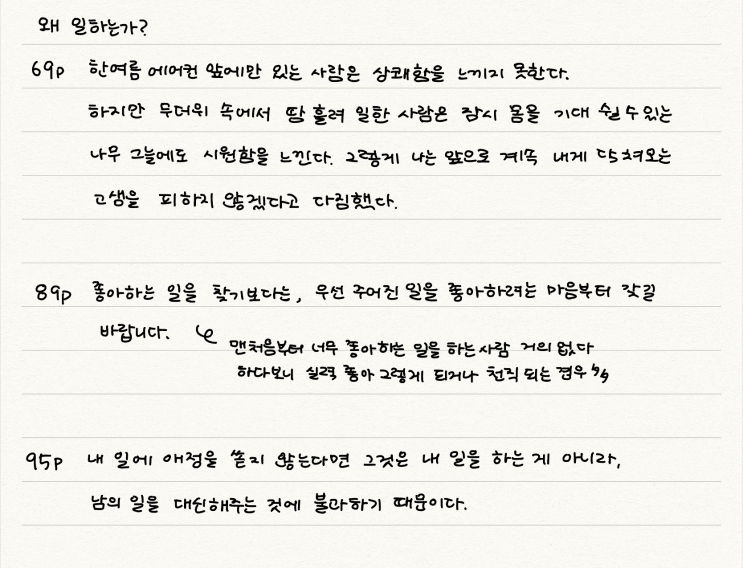 왜 일하는가?
69p 한여름 에어컨 앞에만 있는 사람은 상쾌함을 느끼지 못한다.
하지만 무더위 속에서 땀 흘려 일한 사람은 잠시 몸을 기대 쉴 수 있는
나무 그늘에도 시원함을 느낀다. 그렇게 나는 앞으로 계속 내게 닥쳐오는
고생을 피하지 않겠다고 다짐했다.
89p 좋아하는 일을 찾기보다는, 우선 주어진 일을 좋아하려는 마음부터 갖길
바랍니다.
맨처음부터 너무 좋아하는 일을 하는 사람 거의 없다
하다보니 실력 좋아 그렇게 되거나 천직 되는 경우 多多
95p 내 일에 애정을 쏟지 않는다면 그것은 내 일을 하는 게 아니라,
남의 일을 대신해주는 것에 불과하기 때문이다.